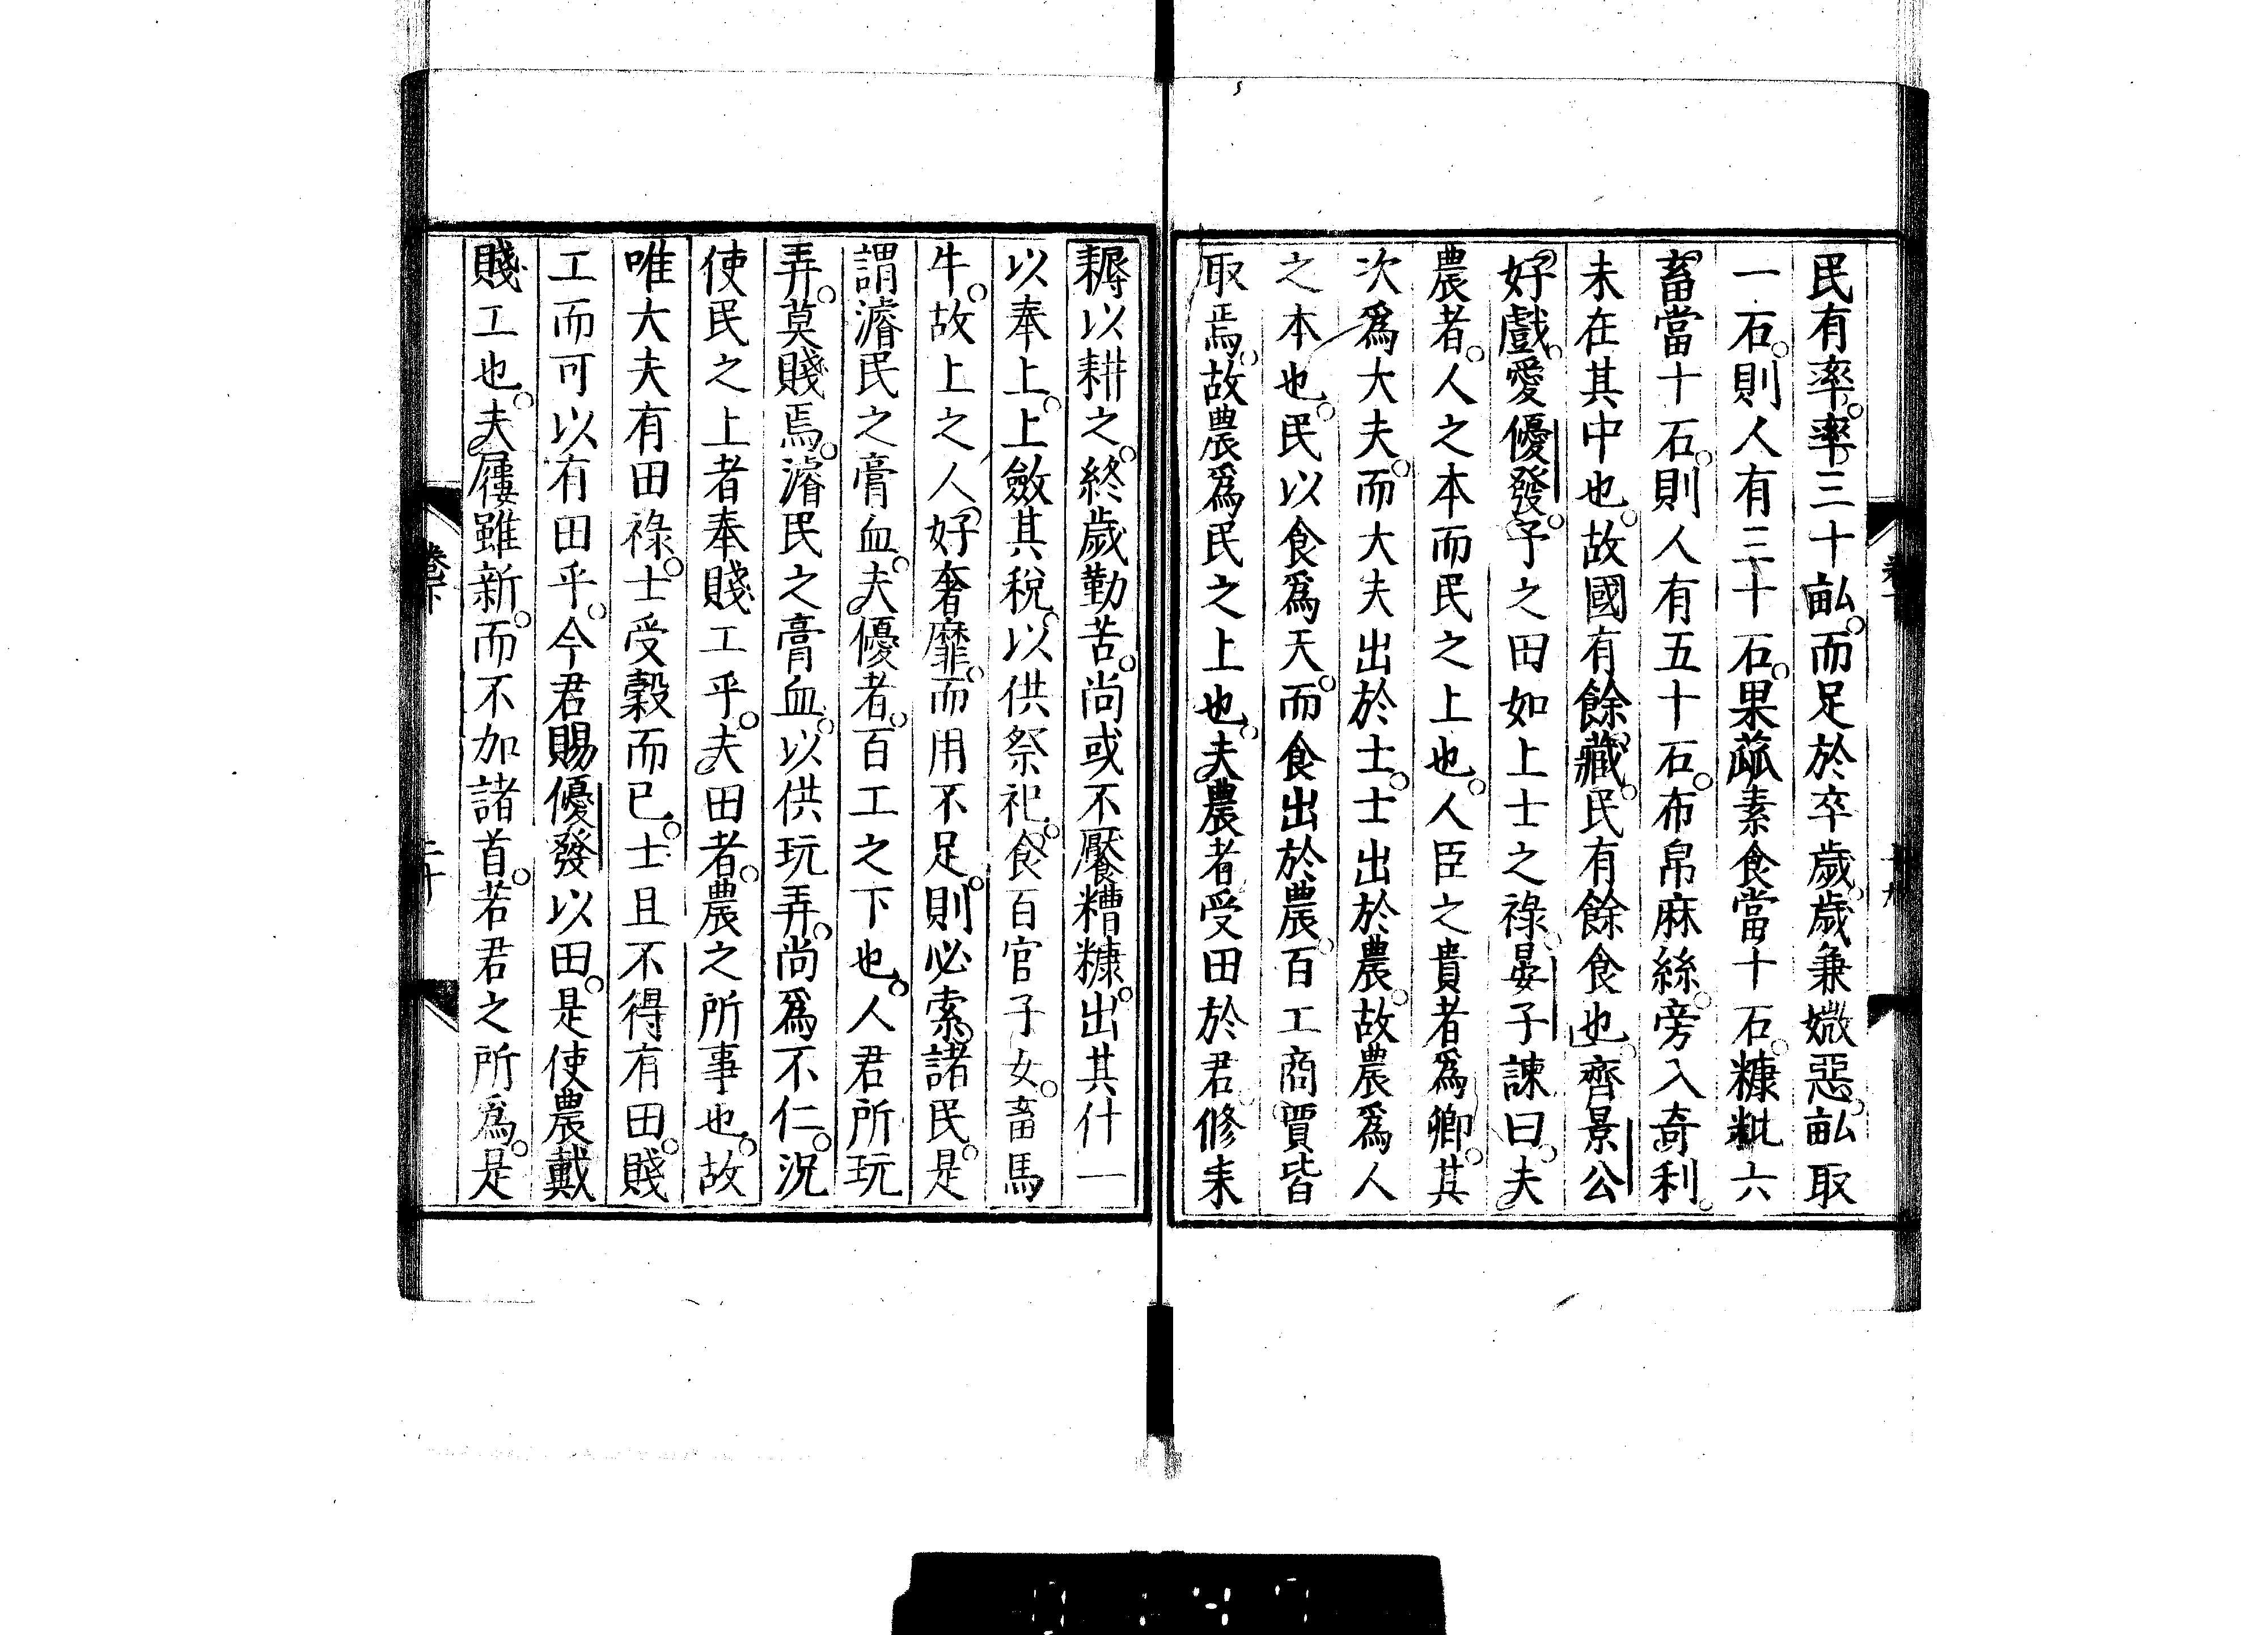 民有率。率三十畝。而足於卒歲。歲兼媺惡。畝取
一石。則人有三十石。果蓏素食當十石。糠粃六
畜當十石。則人有五十石。布帛麻絲。旁入奇利。
未在其中也。故國有餘藏。民有餘食也。齊景公
好戲。愛優發。予之田如上士之祿。晏子諫曰。夫
農者。人之本而民之上也。人臣之貴者爲卿。其
次爲大夫。而大夫出於士。士出於農。故農爲人
之本也。民以食爲天。而食出於農。百工商賈皆
取焉。故農爲民之上也。夫農者受田於君。修耒
耨以耕之。終歲勤苦。尚或不饜糟糠。出其什一
以奉上。上斂其稅。以供祭祀。食百官子女。畜馬
牛。故上之人。好奢靡。而用不足。則必索諸民。是
謂濬民之膏血。夫優者。百工之下也。人君所玩
弄。莫賤焉。濬民之膏血。以供玩弄。尚爲不仁。況
使民之上者奉賤工乎。夫田者。農之所事也。故
唯大夫有田祿。士受穀而已。士且不得有田。賤
工而可以有田乎。今君賜優發以田。是使農戴
賤工也。夫屨雖新。而不加諸首。若君之所爲。是